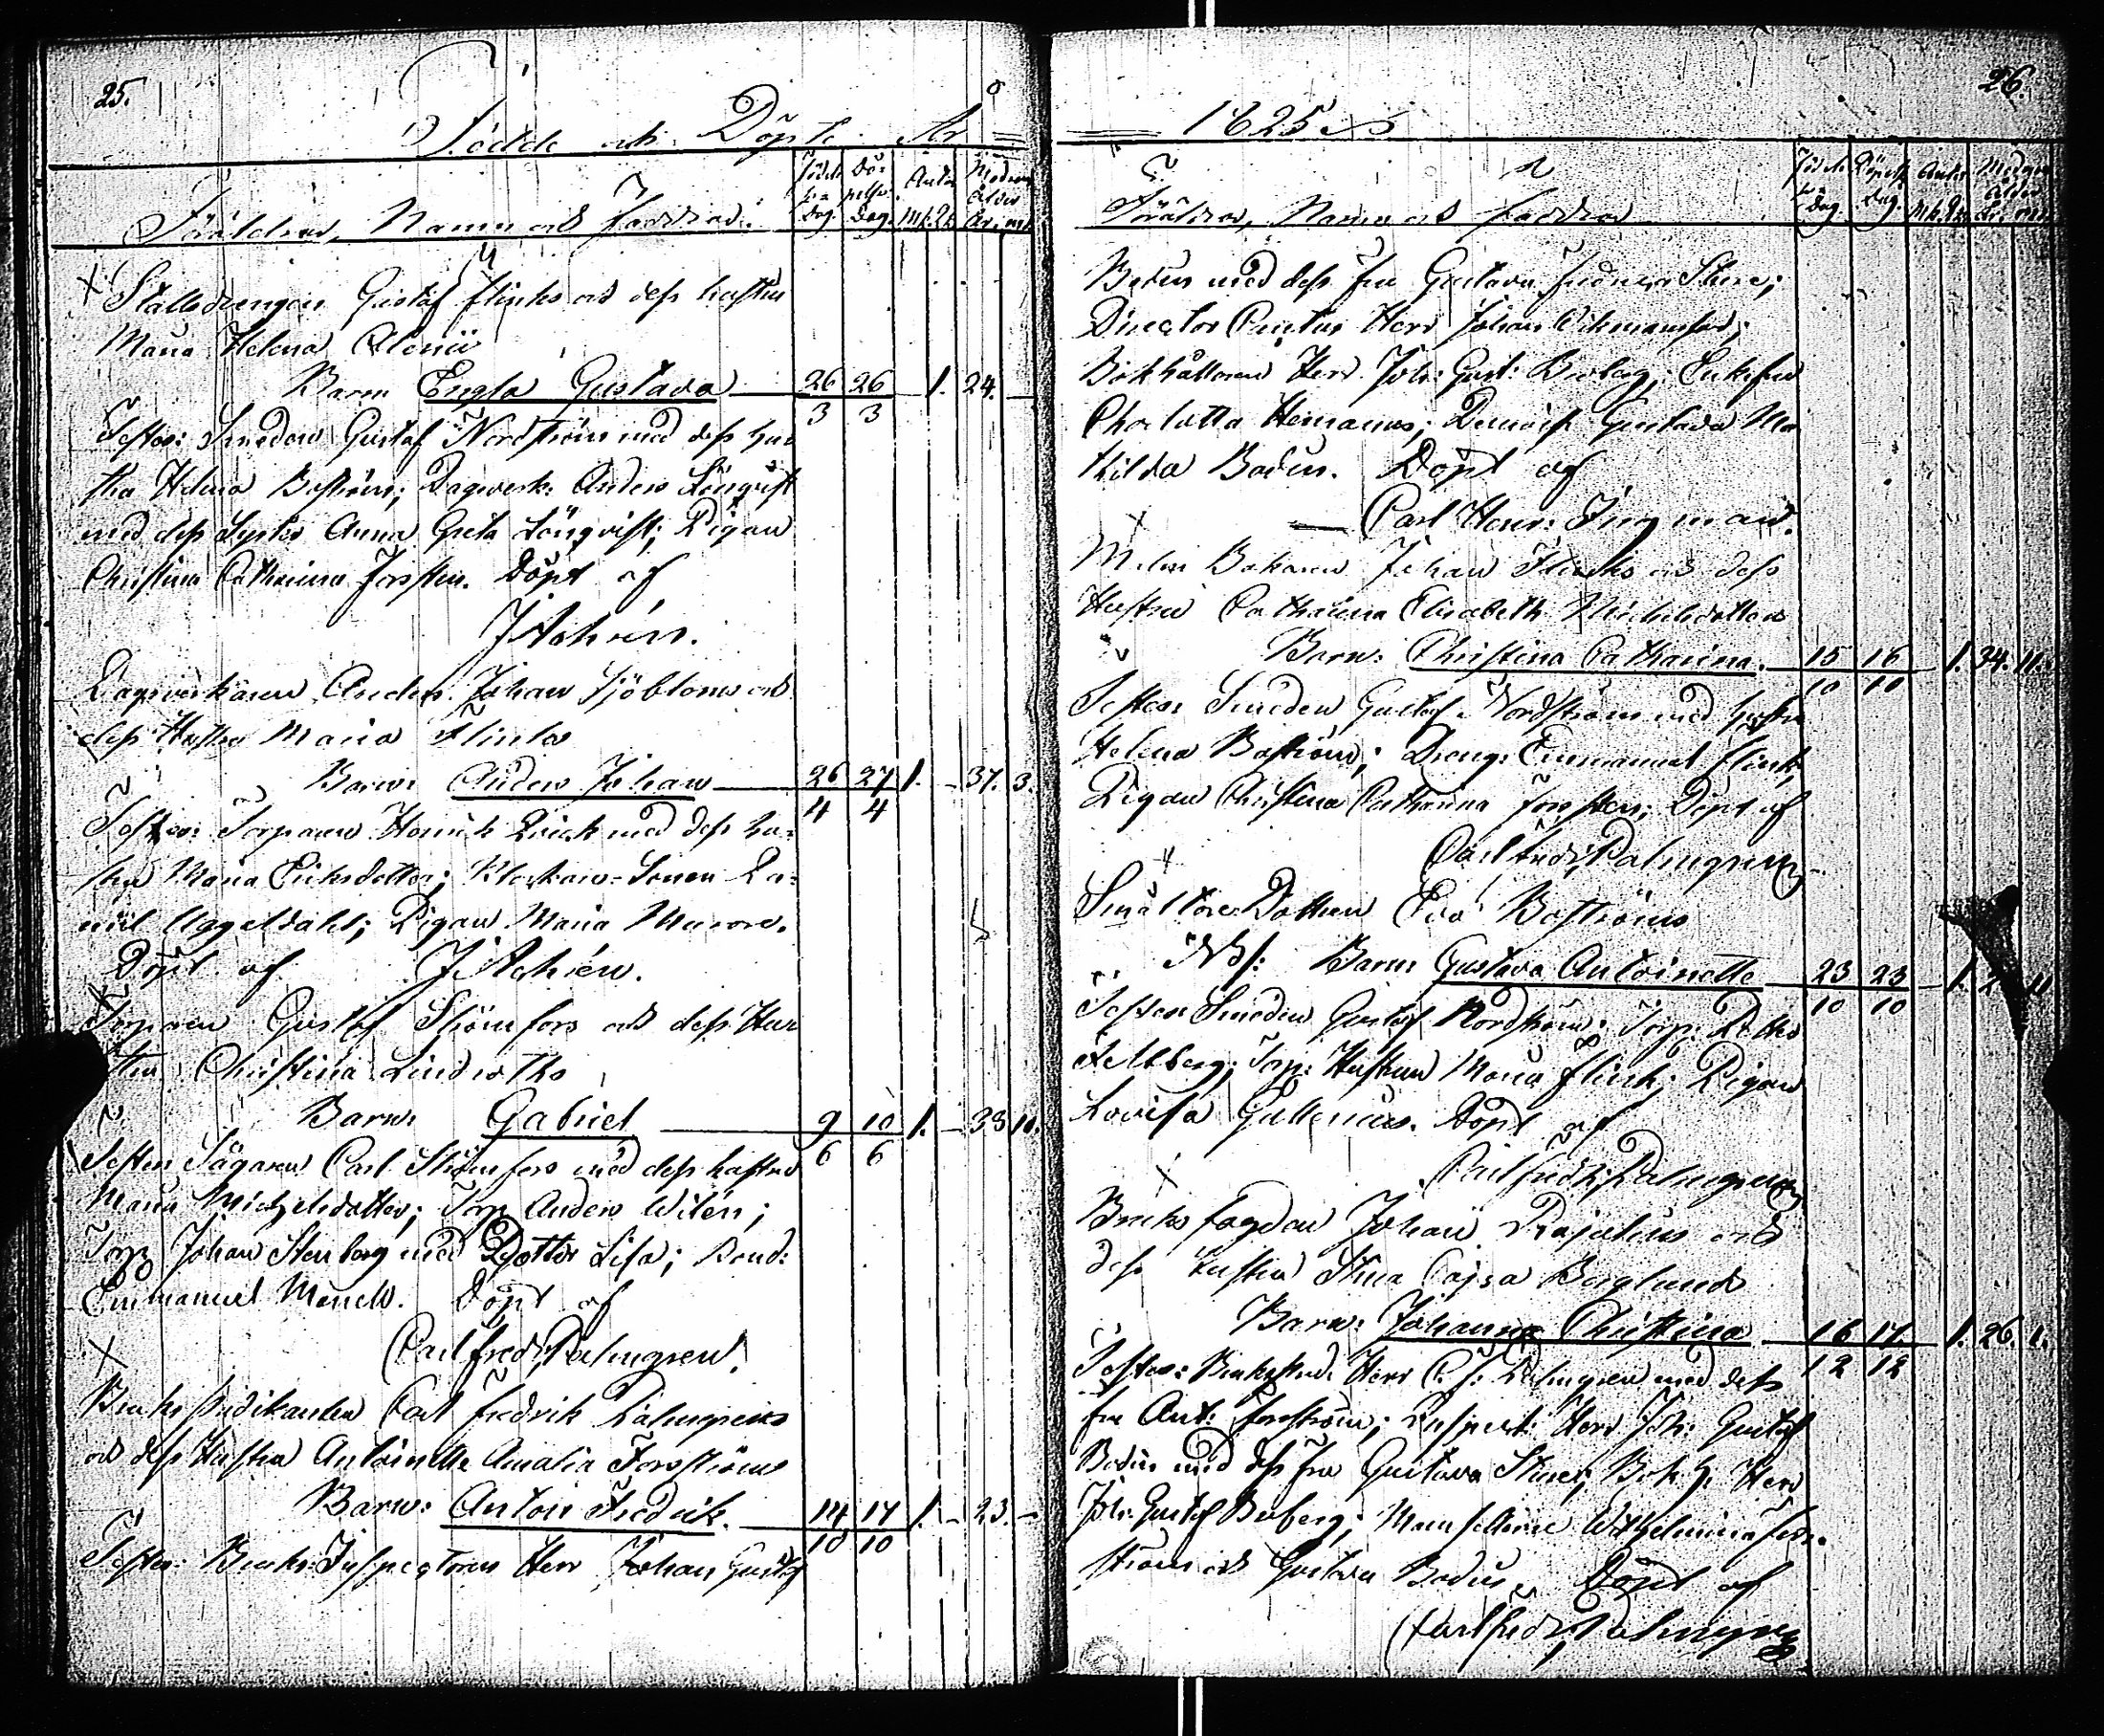 25.
Födde och Döpte År
Föräldrar, Namn och Faddrar.
Födel- se Dag. Döpelse Dag. Antal M.k. Q.k. Modrens ålder År, mån
Stalledrengen Gustaf Flinks och dess hustru
Maria Helena Alenii
Barn Engla Gustava 26/3 26/3 1. 24.
Testes: Smeden Gustaf Nordström med dess hus
tru Helena Boström; Dagsverk. Anders Lönqvist
med dess Syster Anna Greta Lönqvist; Pigan
Christina Catharina Forsten. Döpt af
J Achrén.
Dagsverkaren Anders Johan Sjöbloms och
dess Hustru Maria Flinks
Barn: Anders Johan 26/4 27/4 1. 37. 3.
Testes: Torparen Henrik Qvick med dess hu-
stru Maria Eriksdotter; Klockare-Sonen Da-
niel Uggeldahl; Pigan Maria
Döpt af J Achrén.
Torparen Gustaf Strömfors och dess Hus
tru Christina Lindroths
Barn: Gabriel 9/6 10/6 1. 33 10.
Testes Sågaren Carl Strömfors med dess hustru
Maria Michelsdotter; Torp. Anders Wilén;
Torp. Johan Stenberg med Dotter Lisa; Bond:
Emmanuel Manell. Döpt af
Carl Fredr. Palmgren.
Bruks Predikanten Carl Fredrik Palmgrens
och dess Hustru Antoinette Amalia Forsströms
Barn: Anton Fredrik. 14/10 17/10 1. 23.
Testes: Bruks Inspectoren Herr Johan Gustaf
26.
1825
Föräldrar, Namn och Faddrar
Födelse Dag. Döpelse Dag. Antal M.k. Q.k. Modrens ålder År, mån
Bodin med dess fru Gustava Sture;
Director Cantus Herr Johan
Bokhållaren Herr Joh: Gust: Broberg; Enkefru
Charlotta Demois. Gustava Ma
thilda Bodin. Döpt af
Carl Henr: Ingman.
Bakaren Johan Flinks och dess
Hustru Catharina Elisabeth Michelsdotters
Barn: Christina Catharina. 15/10 16/10 1. 34. 11.
Testes Smeden Gustaf Nordström med hustru
Helena Boström; Dreng: Emmanuel Flink,
Pigan Christina Catharina Forsten; Döpt af
Carl Fredr. Palmgren
Dottren Eva Boströms
Barn: Gustava Antoinette 23/10 23/10 1. 11
Testes Smeden Gustaf Nordström; Torp:
Fellberg; Torp: Hustrun Maria Flink; Pigan
Lovisa Döpt af
Carl Fredr. Palmgren
Bruks fogden Johan Rajalins och
dess Hustru Stina Cajsa Berglund
Barn: Johanna Christina 16/12 17/12 1. 26. 1.
Testes: Brukspred. Herr C. F. Palmgren med dess
fru Ant: Forsström; Inspect: Herr Joh: Gustaf
Bodin med dess fru Gustava Sture; Bokh. Herr
Joh. Gustaf Broberg; Wilhelmina Fors-
ström och Gustava Bodin. Döpt af
Carl Fredr. Palmgren